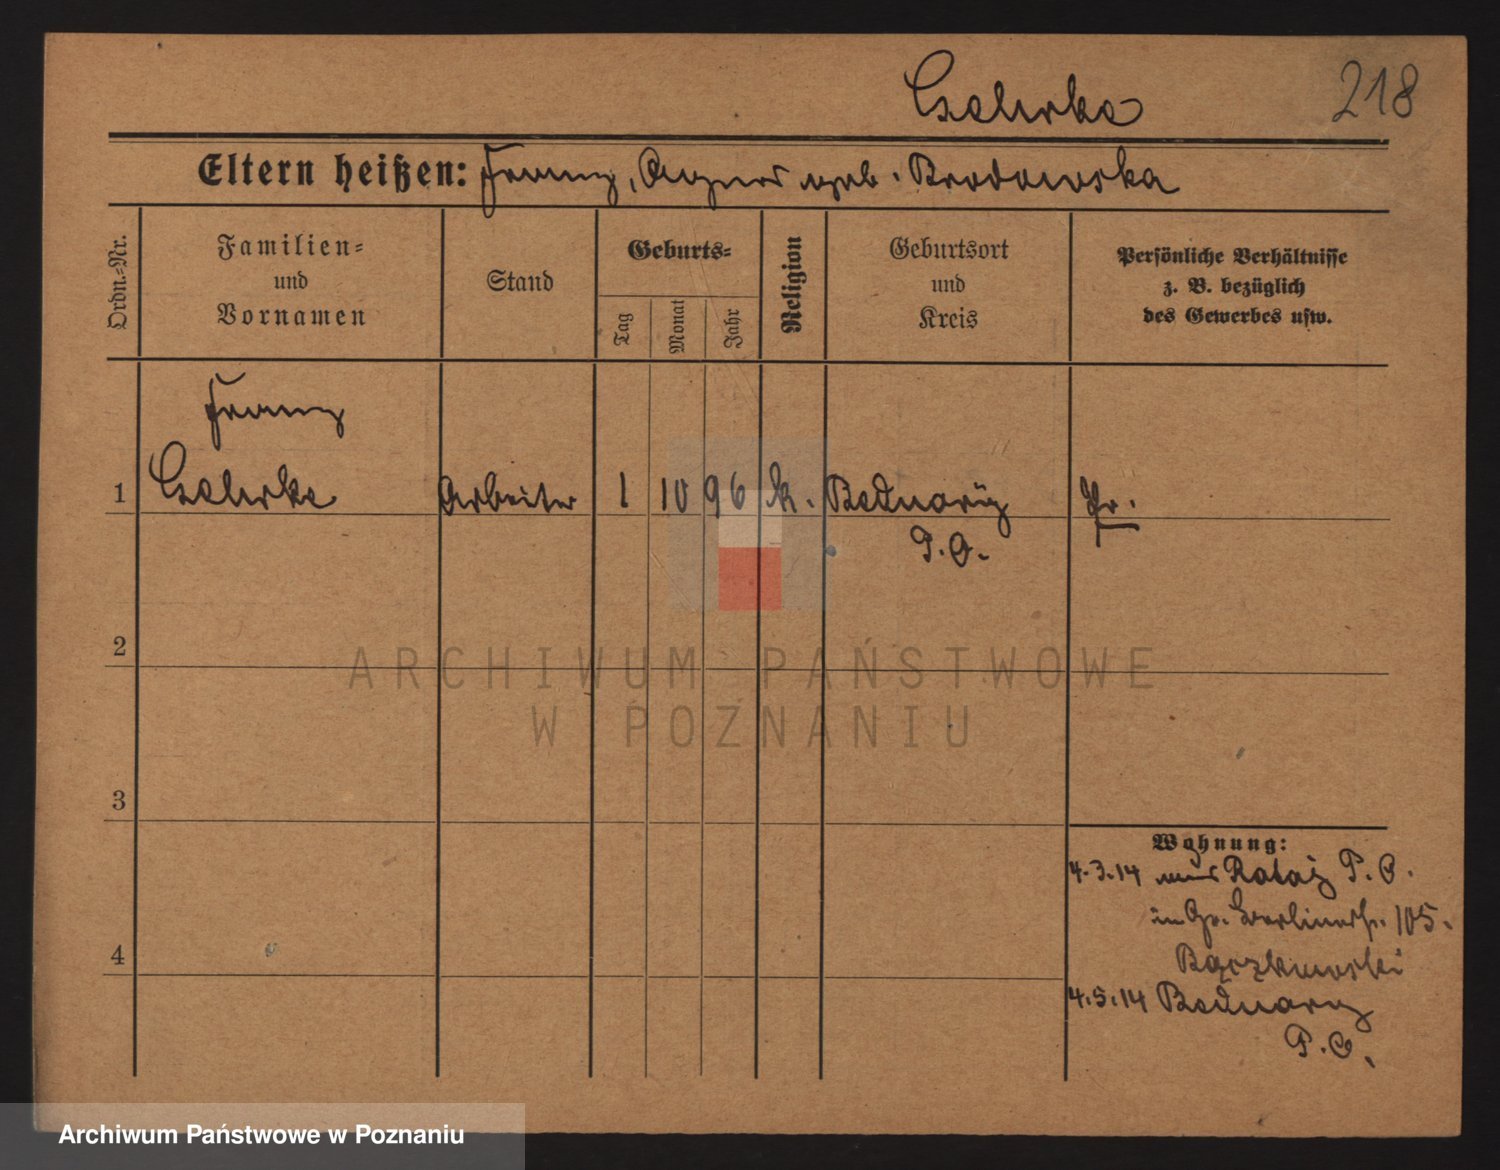 218
Eltern heißen: Franz, Agnes geb. Brodowska
Ordn.=Nr.
Familien=
und
Vornamen
Stand
Geburts=
Tag
Monat
Jahr
Religion
Geburtsort
und
Kreis
Persönliche Verhältnisse
z. B. bezüglich
des Gewerbes usw.
Franz
1 Arbeiter 1 10 96 k. Bednary Pr.
P. O.
2
3
4
Wohnung:
4.3.14 aus Rataj P. O.
in Gr. Berlinerstr. 105.
Bączkowski
4.5.14 Bednary
P. O.
ARCHIWUM PAŃSTWOWE
W POZNANIU
Archiwum Państwowe w Poznaniu